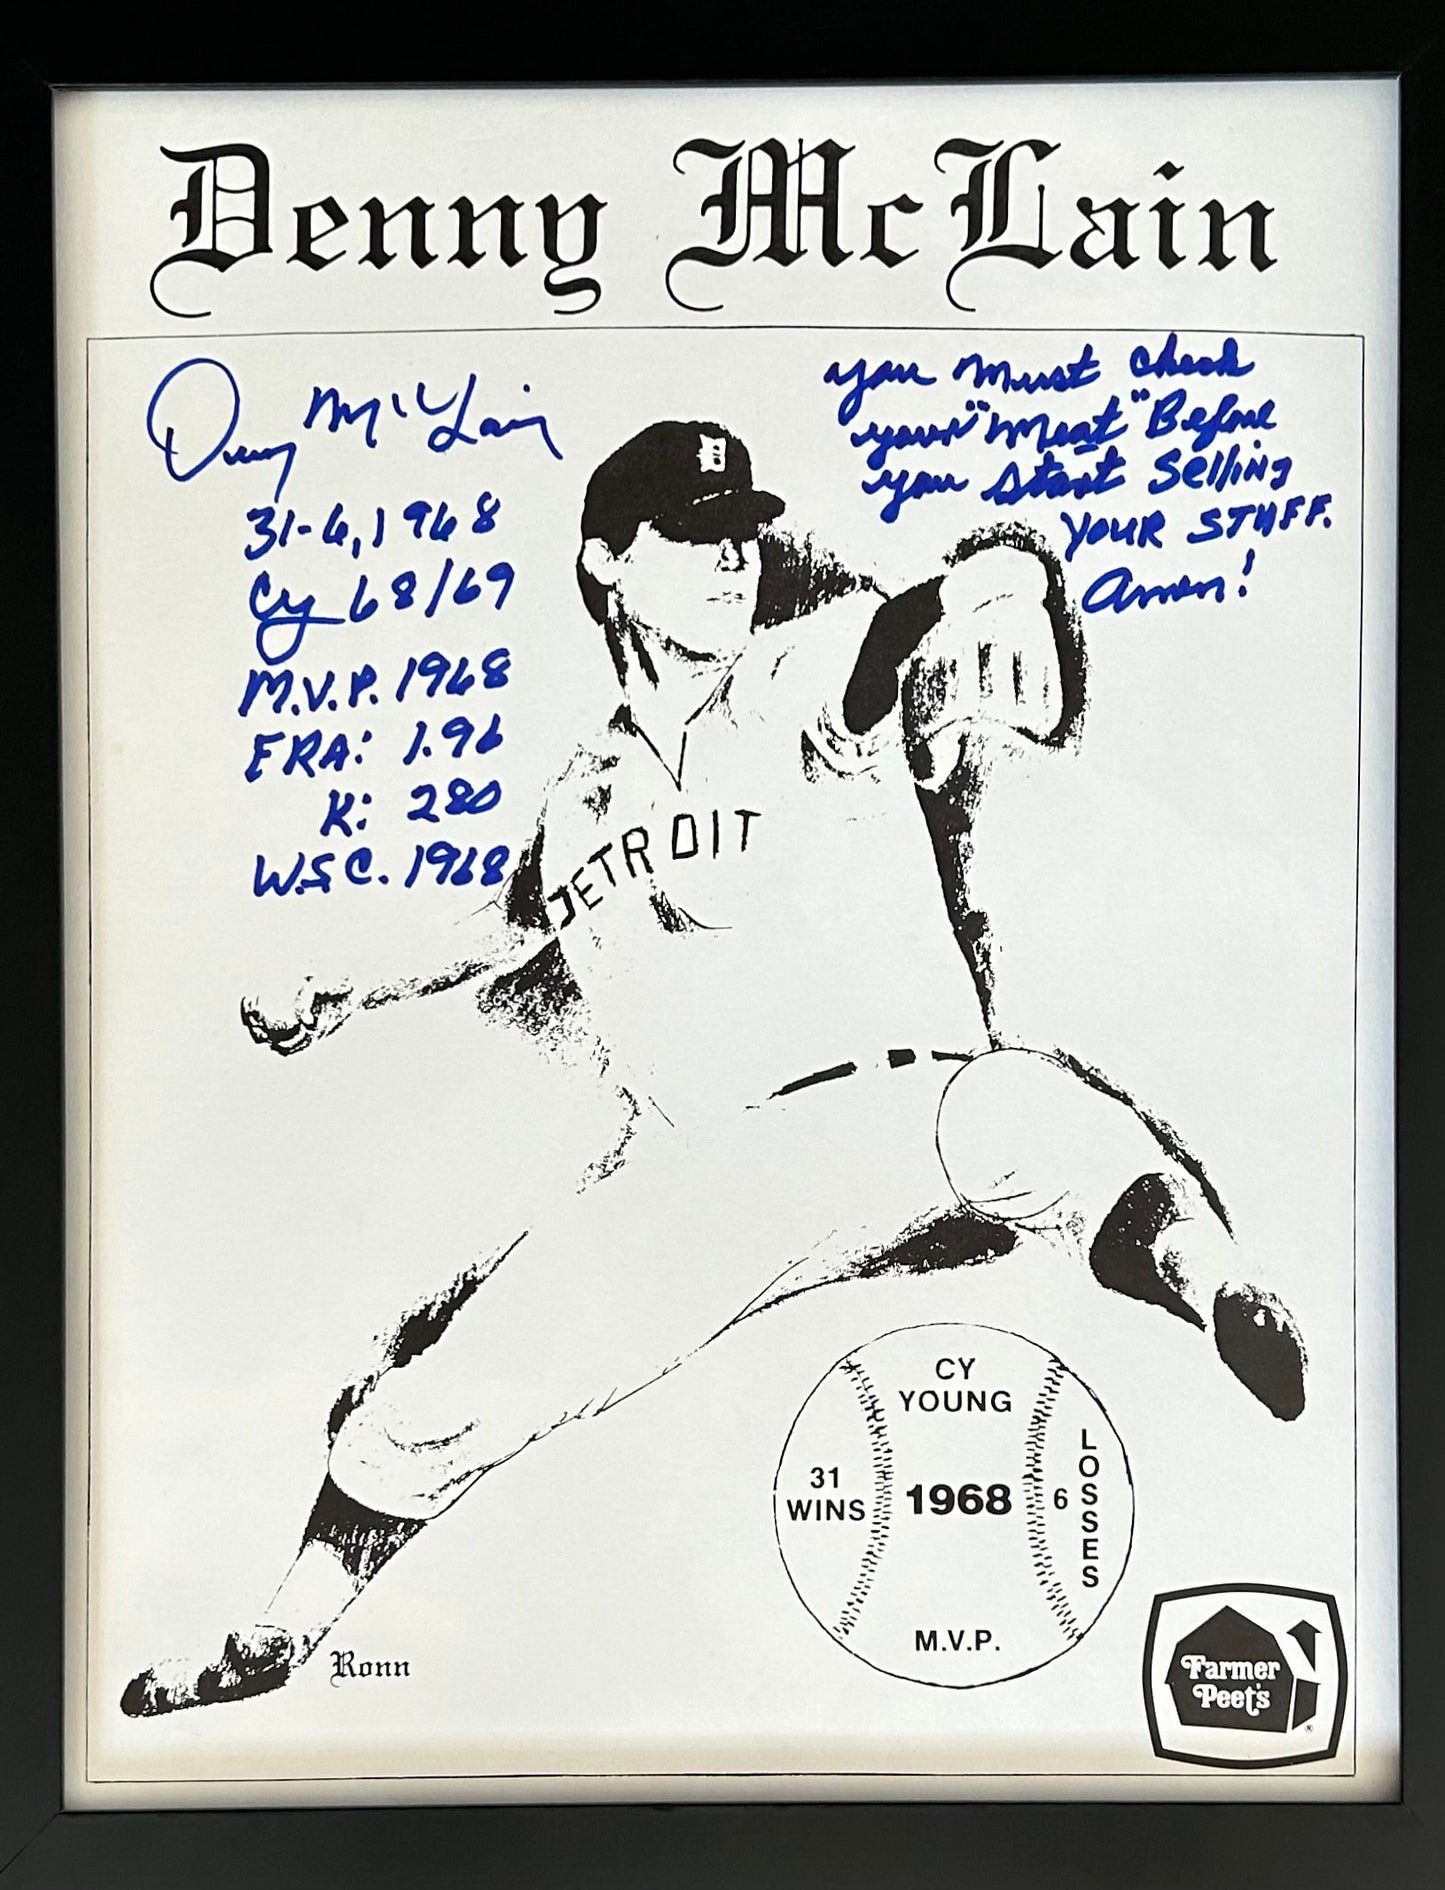 Denny McLain
Denny McLain
31-6, 1968
Cy 68/69
M.V.P. 1968
ERA: 1.96
K: 280
W.S.C. 1968
you must check
your "meat" Before
you start selling
YOUR STUFF.
Amen!
D
DETROIT
CY
YOUNG
31
WINS
1968
6
LOSSES
M.V.P.
Ronn
Farmer
Peet's
®